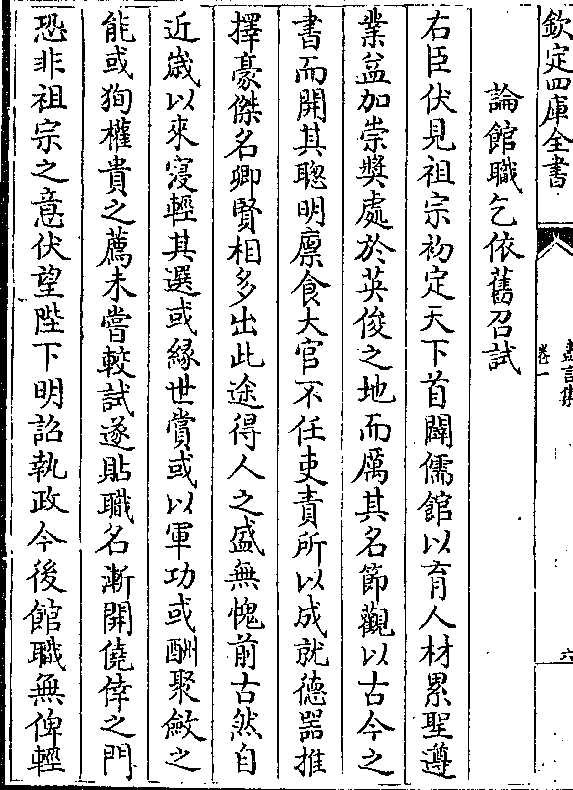 欽定四庫全書
盡言集
卷一
六
論館職乞依舊召試
右臣伏見祖宗初定天下首闢儒館以育人材累聖遵
業益加崇奬處於英俊之地而厲其名節觀以古今之
書而開其聰明廪食大官不任吏責所以成就德器推
擇豪傑名卿賢相多出此途得人之盛無愧前古然自
近嵗以來寖輕其選或緣世賞或以軍功或酬聚斂之
能或狥權貴之薦未嘗較試遂貼職名漸開僥倖之門
恐非祖宗之意伏望陛下明詔執政今後館職無俾輕